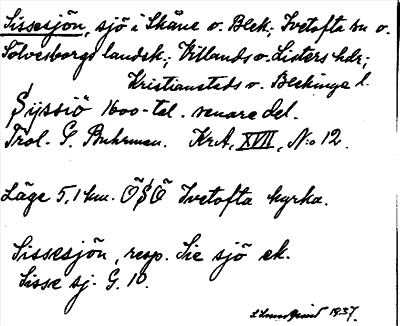 Sissesjön, sjö i Skåne o. Blek.; Ivetofta sn o.
Sölvesborgs landsk.; Villands o. Listers hdr;
Kristianstads o. Blekinge l.
Syssiö 1600-tal. senare del.
Trol. G. Buhrman. KrA, XVII, N:o 12.
Läge 5,1 km. ÖSÖ Ivetofta kyrka.
Sissesjön, resp. Sie sjö ek.
Sisse sj. G. 10.
1937.